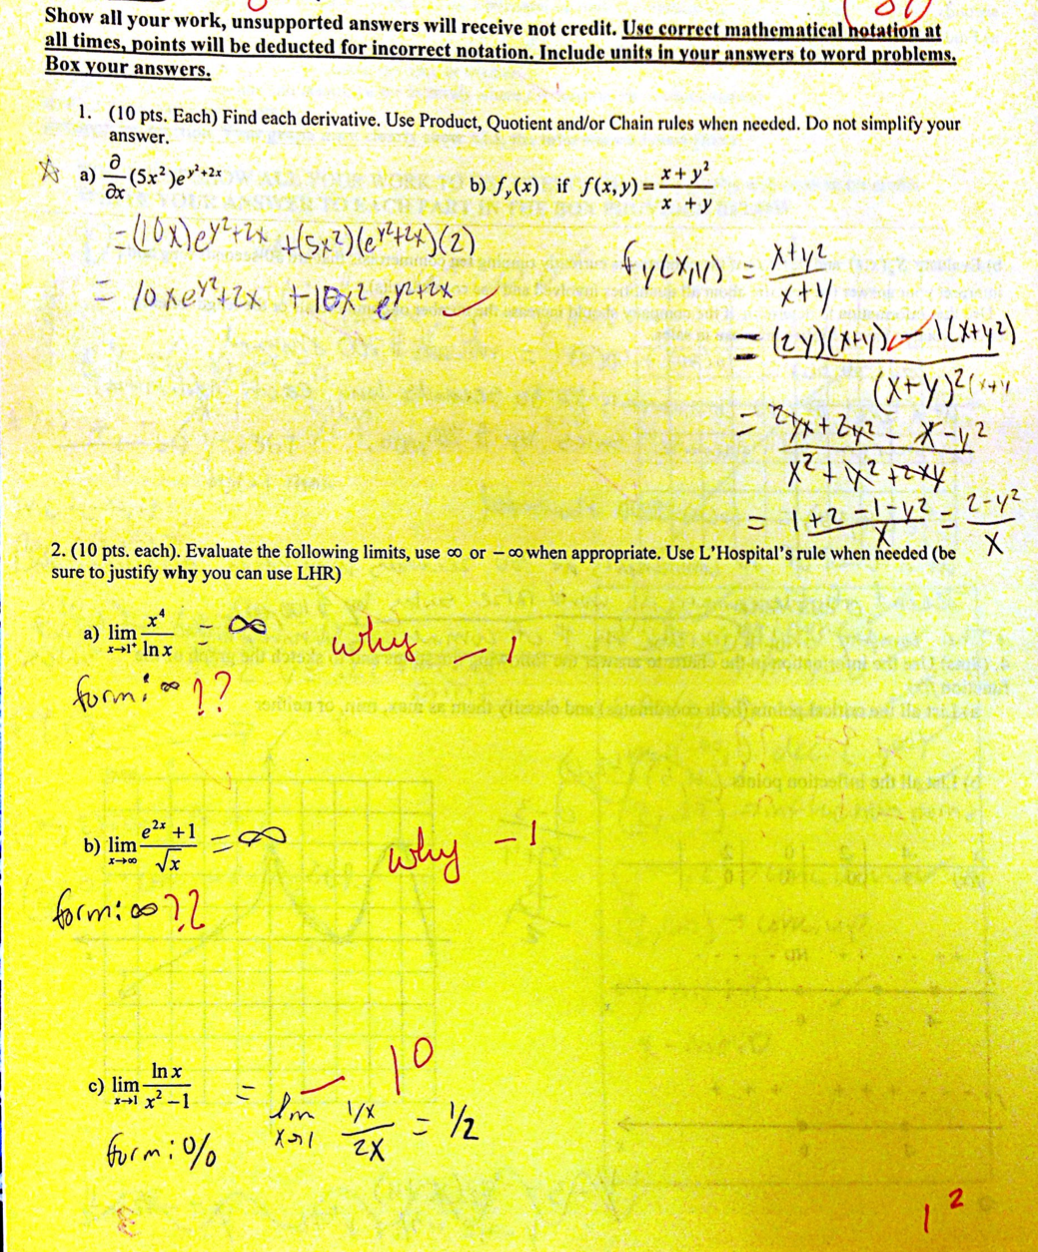 Show all your work, unsupported answers will receive not credit. Use correct mathematical notation at
all times, points will be deducted for incorrect notation. Include units in your answers to word problems.
Box your answers.
1. (10 pts. Each) Find each derivative. Use Product, Quotient and/or Chain rules when needed. Do not simplify your
answer.
a) ∂/∂x (5x²)e^(y²+2x)
= (10x)e^(y²+2x) + (5x²)(e^(y²+2x))(2)
= 10xe^(y²+2x) + 10x² e^(y²+2x)
b) f_y(x) if f(x,y) = (x + y²)/(x + y)
f_y(x,y) = (x+y²)/(x+y)
= ((2y)(x+y) - 1(x+y²))/(x+y)²
= (2yx + 2y² - x - y²)/(x² + y² + 2xy)
= (1+2-1-y²)/x = (2-y²)/x
2. (10 pts. each). Evaluate the following limits, use ∞ or −∞ when appropriate. Use L'Hospital's rule when needed (be
sure to justify why you can use LHR)
a) lim x→1⁺ x⁴/ln x = ∞ why -1
form: ∞ ??
b) lim x→∞ (e^(2x) + 1)/√x = ∞ why -1
form: ∞ ??
10
c) lim x→1 ln x/(x² − 1) = lim x→1 (1/x)/(2x) = 1/2
form: 0/0
1 2